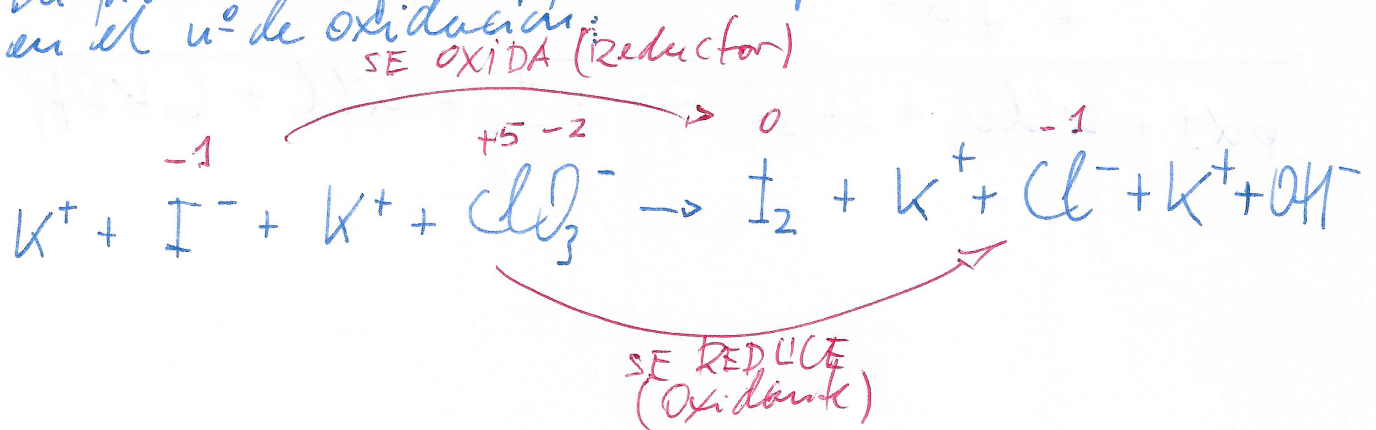 en el nº de oxidación:
SE OXIDA (Reductor)
-1 +5 -2 0 -1
K⁺ + I⁻ + K⁺ + ClO₃⁻ → I₂ + K⁺ + Cl⁻ + K⁺ + OH⁻
SE REDUCE
(Oxidante)